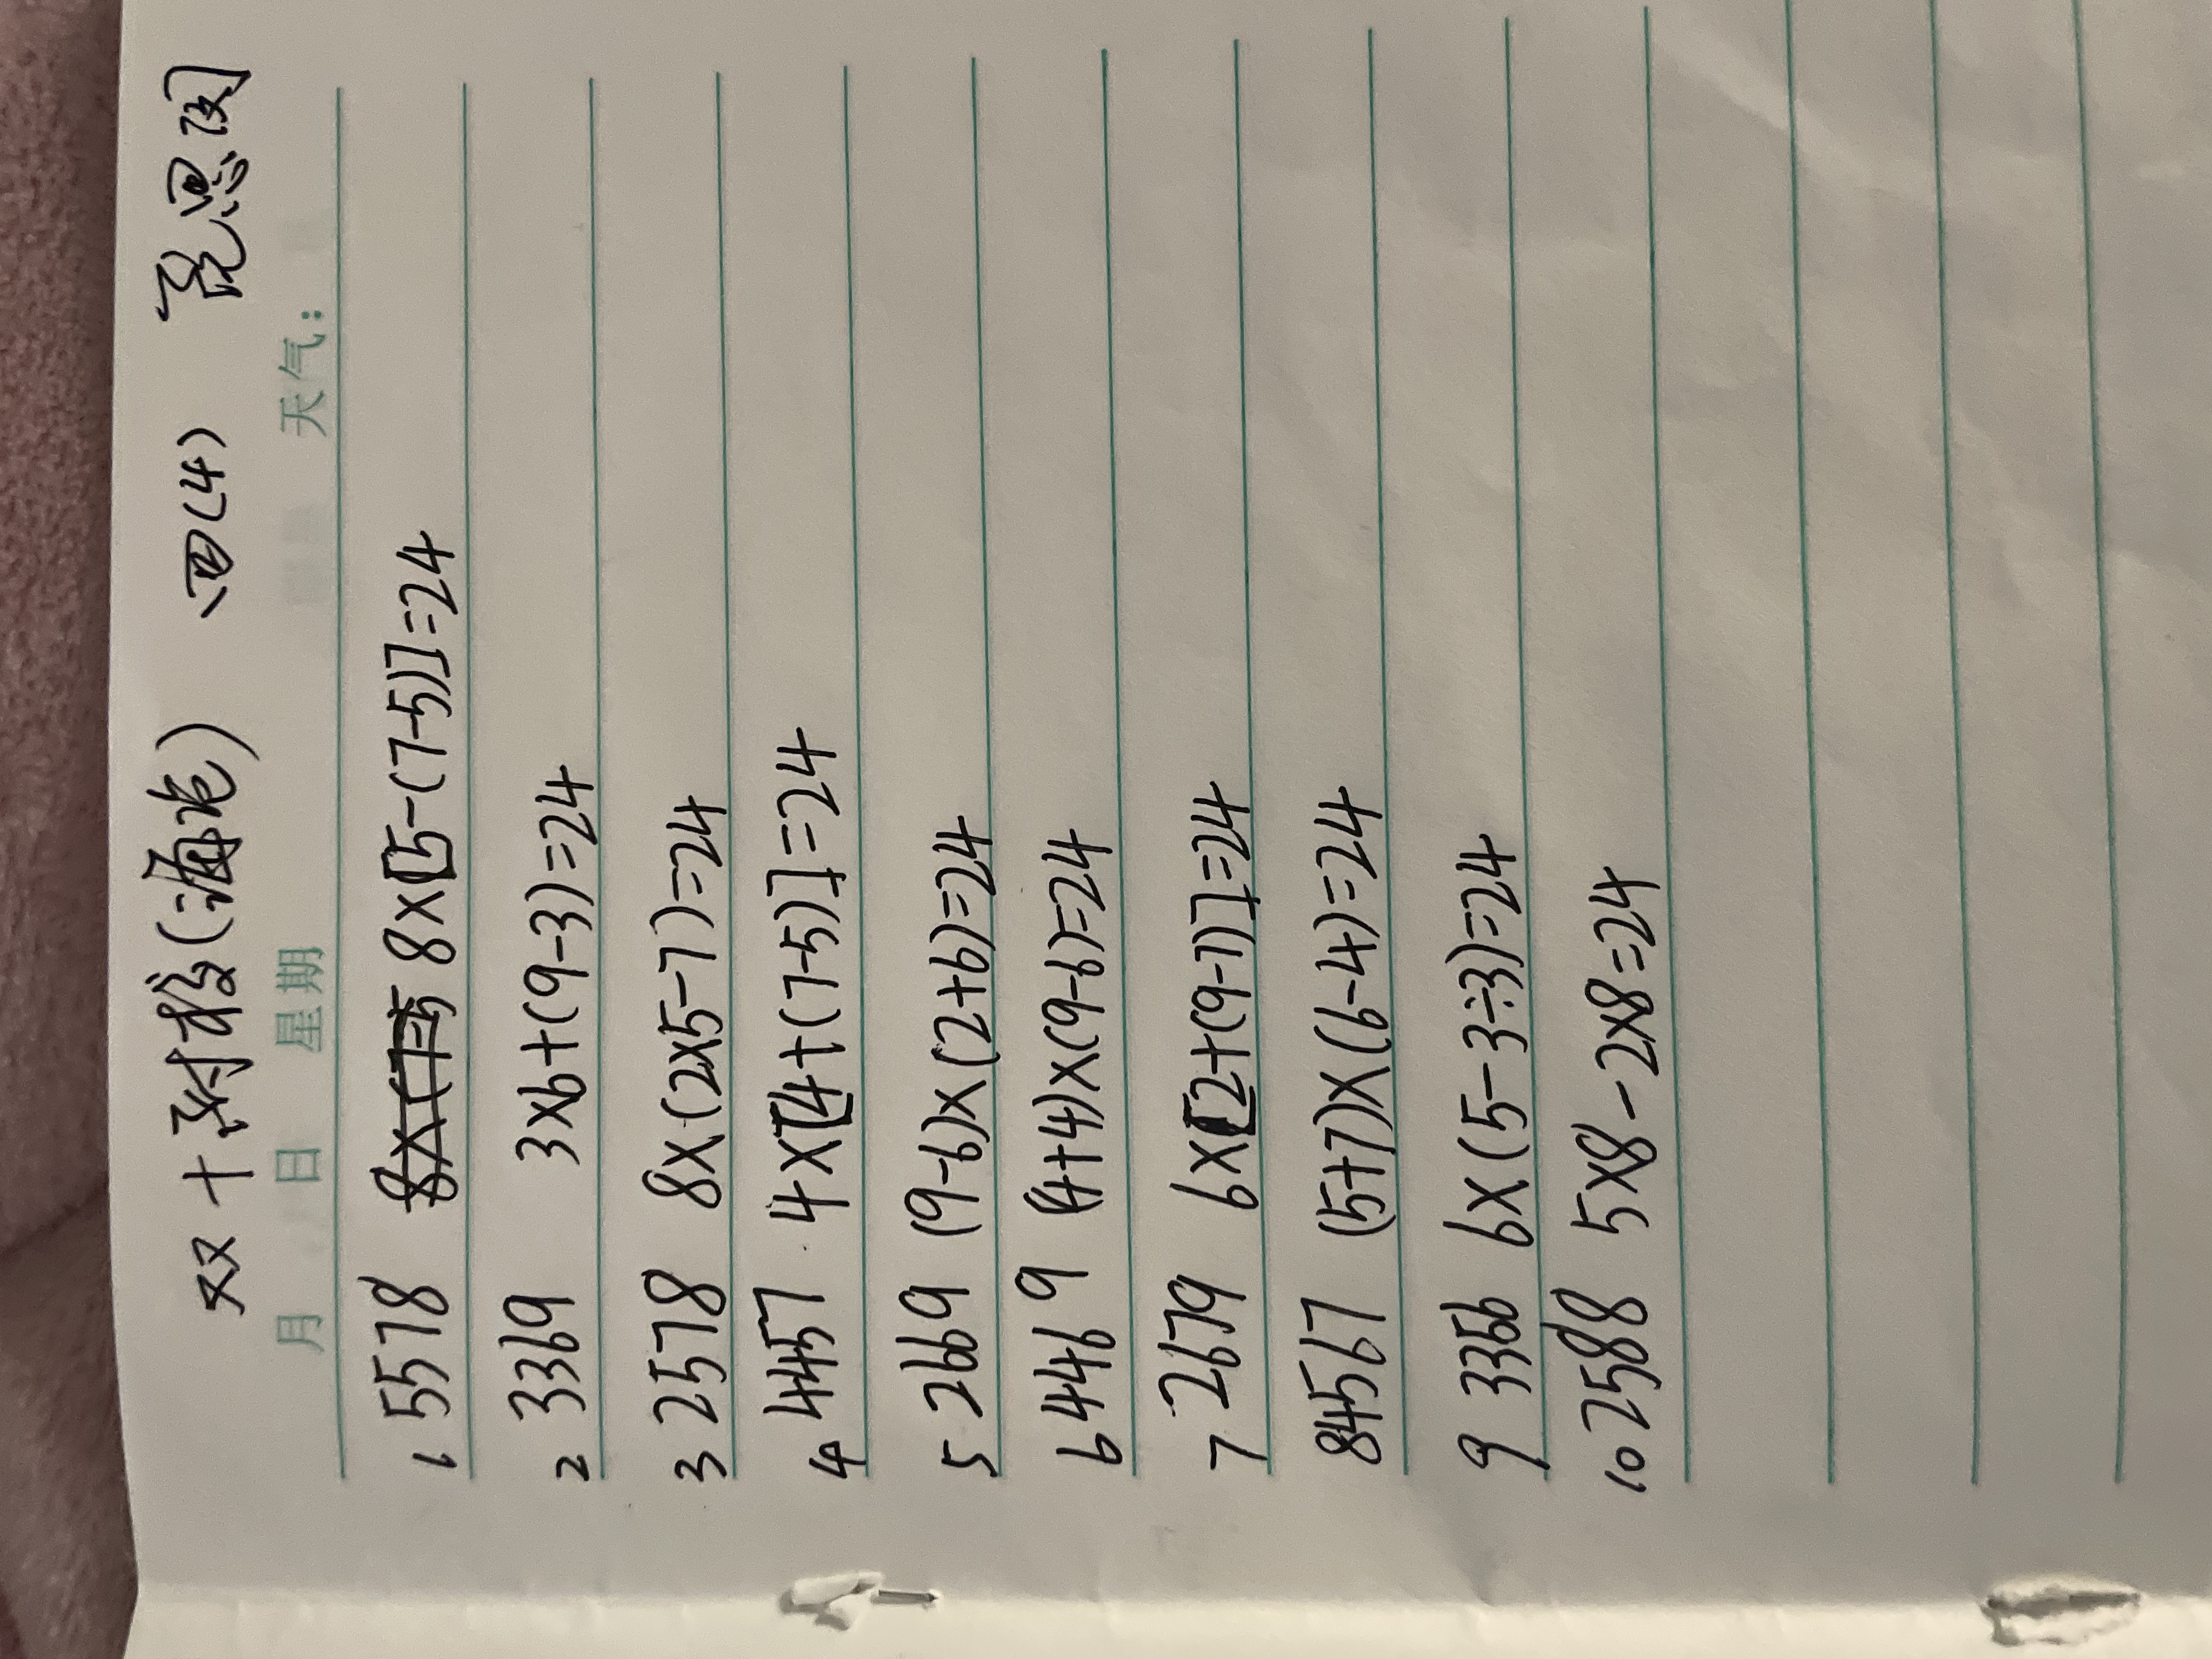 双十附校(海沧) 四(4) 苑思闵
月 日 星期 天气:
1 5578 8×[5-(7-5)]=24
2 3369 3×6+(9-3)=24
3 2578 8×(2×5-7)=24
4 4457 4×[4+(7-5)]=24
5 2669 (9-6)×(2+6)=24
6 4469 (4+4)×(9-6)=24
7 2679 6×[2+(9-7)]=24
8 4567 (5+7)×(6-4)=24
9 3356 6×(5-3÷3)=24
10 2588 5×8-2×8=24